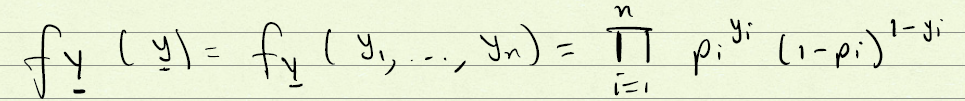 f_y̲ (y̲) = f_y̲ (y₁, ..., yₙ) = ∏_{i=1}^{n} pi^{yi} (1-pi)^{1-yi}